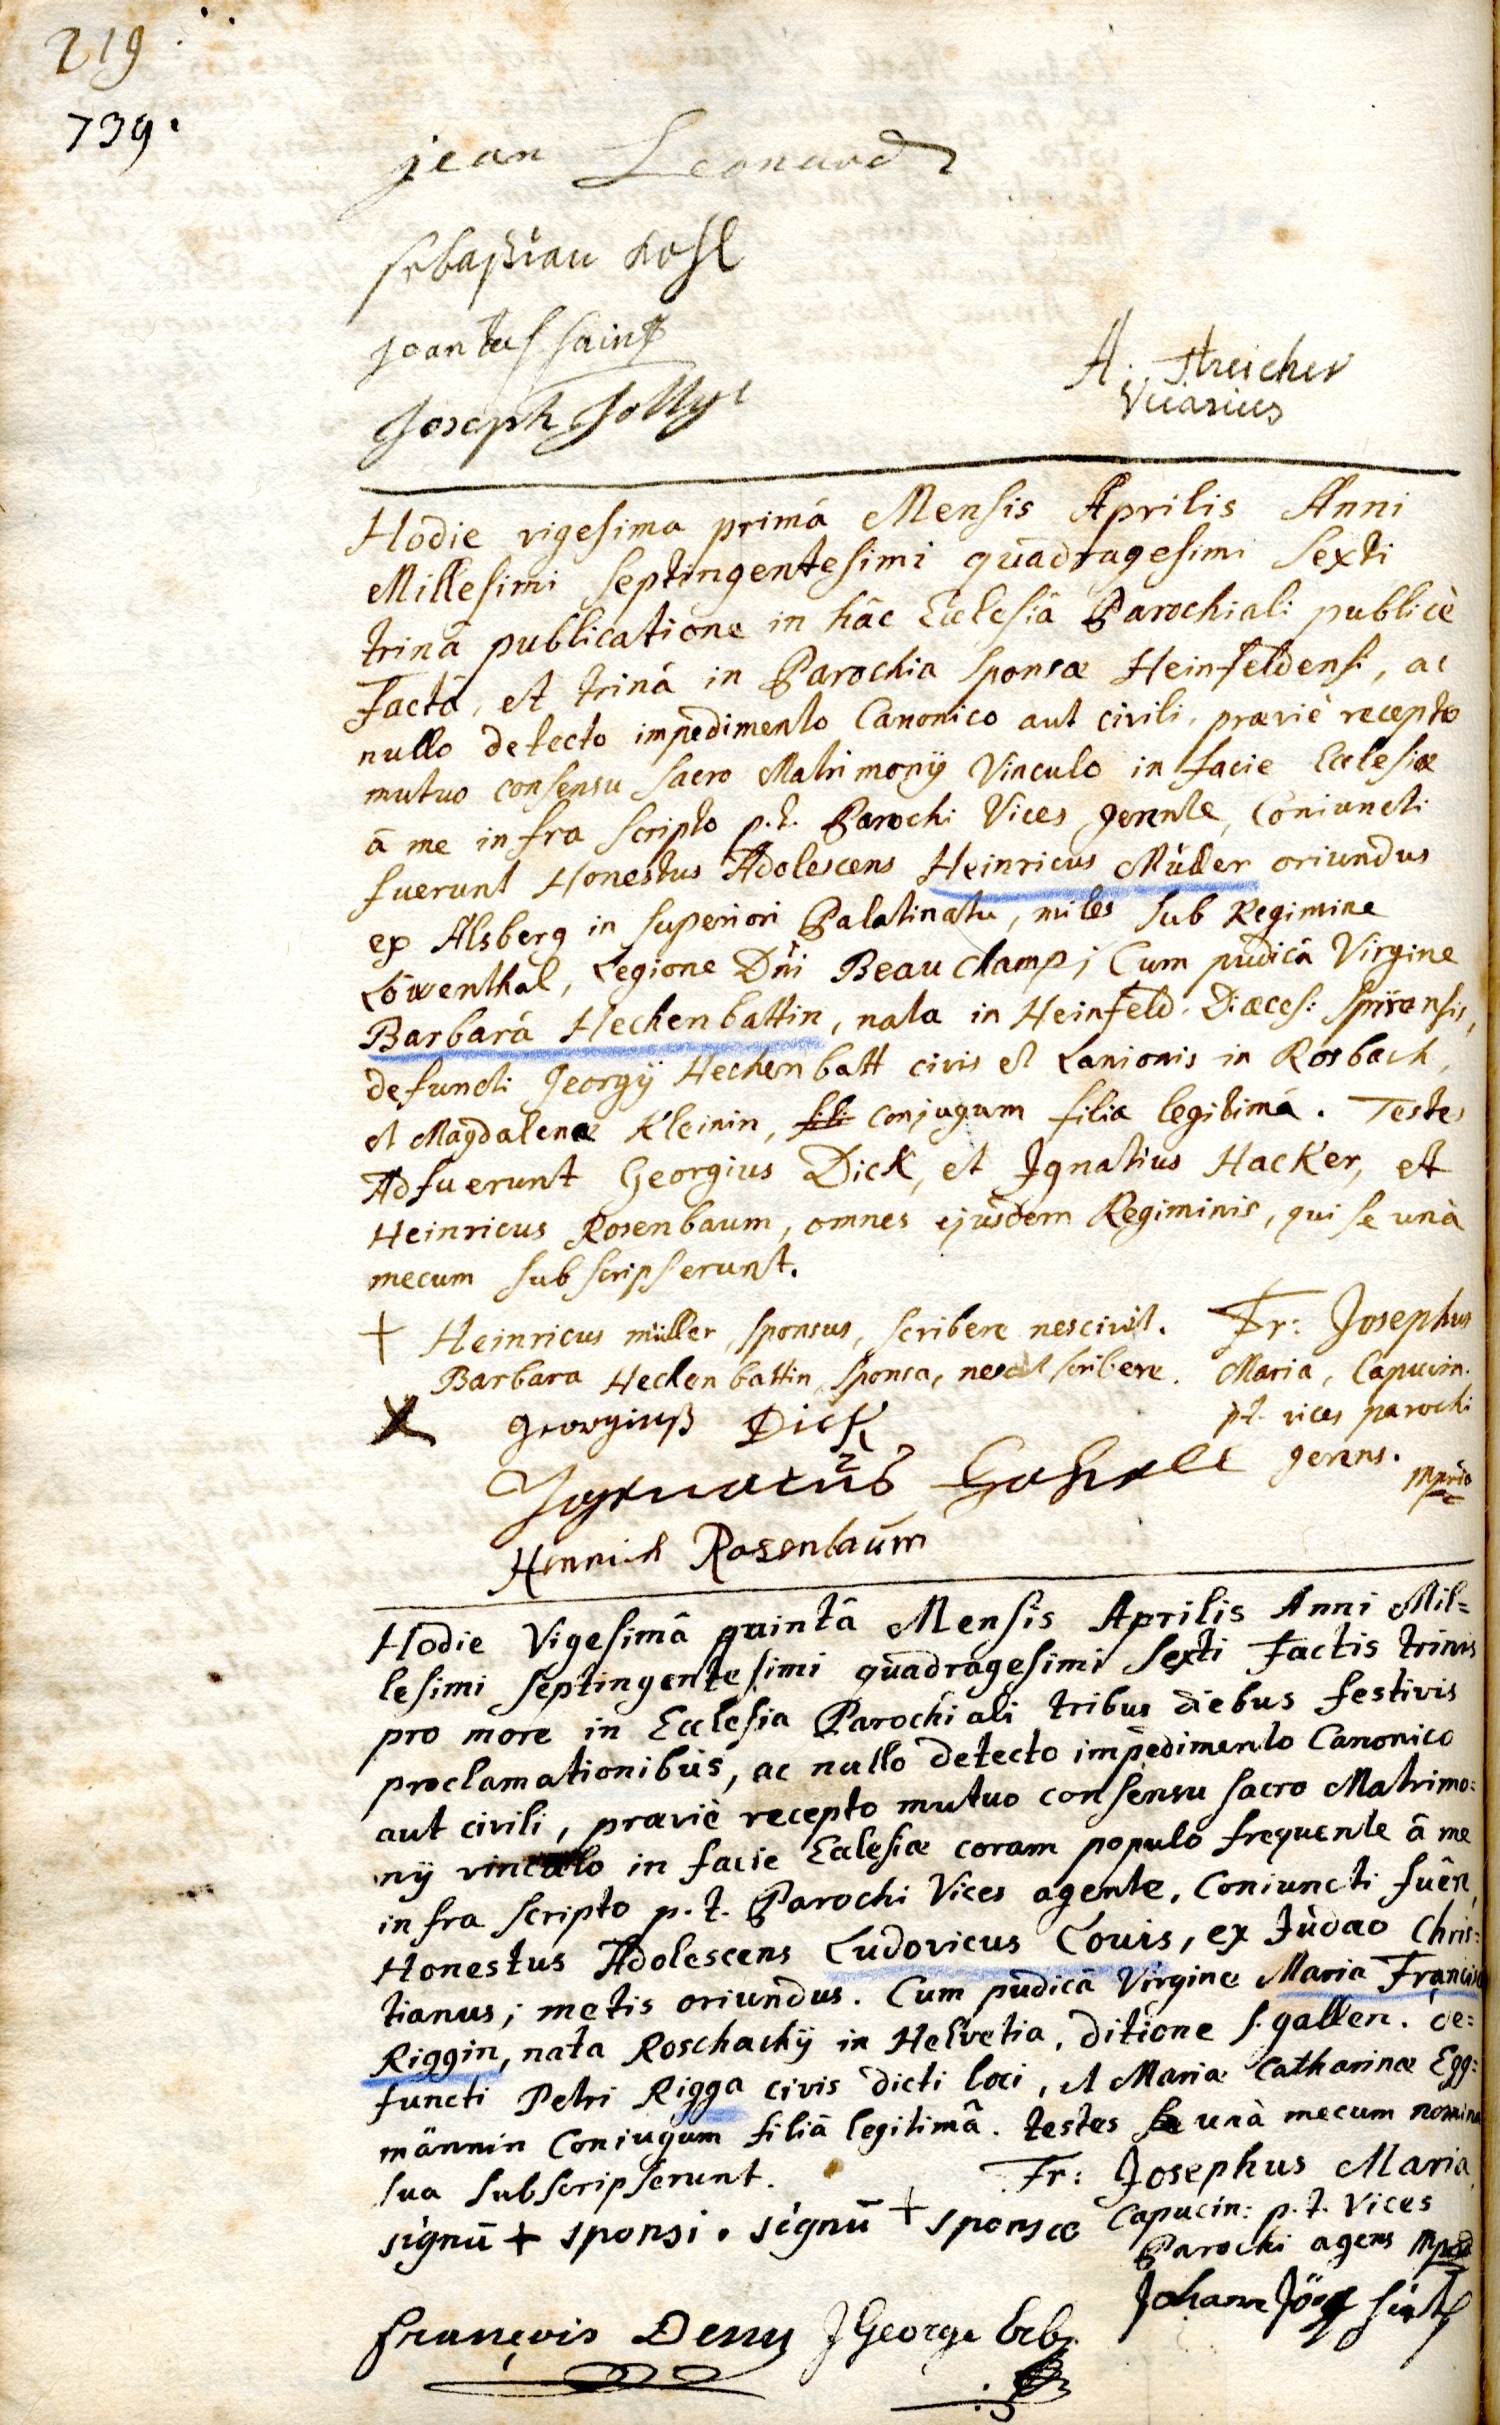 219
739.
jean Leonard
sebastian Kohl
Joseph Jolly
A. Streicher
Vicarius
Hodie vigesima primâ Mensis Aprilis Anni
Millesimi septingentesimi quadragesimi sexti
trinâ publicatione in hâc Ecclesiâ Parochiali publicè
factâ, et trinâ in Parochia sponsæ Heinfeldensi, ac
nullo detecto impedimento Canonico aut civili, præviè recepto
mutuo consensu sacro Matrimonÿ Vinculo in facie Ecclesiæ
â me infra scripto p.t. Parochi Vices gerente, Coniuncti
fuerunt Honestus Adolescens Heinricus Müller oriundus
ex Alsberg in superiori Palatinatu, miles sub Regimine
Löwenthal, Legione Dni Beauchamp; Cum pudicâ Virgine
Barbarâ Heckenbattin, nata in Heinfeld Diæces: Spirensis,
defuncti Georgÿ Heckenbatt civis et Lanionis in Rosbach,
et Magdalenæ Kleinin, fili conjugum filia legitimâ. Testes
Adfuerunt Georgius Dick, et Ignatius Hacker, et
Heinricus Rosenbaum, omnes ejusdem Regiminis, qui se unà
mecum subscripserunt.
+ Heinricus müller, sponsus, scribere nescivit.
Barbara Heckenbattin sponsa, nescit scribere.
Fr: Josephus
Maria, Capucin.
p.t. vices parochi
gerens. mprio
X Georgiuß Dick
Ignacius
Hennich Rosenbaum
Hodie Vigesimâ quintâ Mensis Aprilis Anni Mil=
lesimi septingentesimi quadragesimi sexti factis trinis
pro more in Ecclesia Parochiali tribus diebus festivis
proclamationibus, ac nullo detecto impedimento Canonico
aut civili, præviè recepto mutuo consensu sacro Matrimo=
nÿ vinculo in facie Ecclesiæ coram populo frequente â me
infra scripto p.t. Parochi Vices agente, Coniuncti fuêrt,
Honestus Adolescens Ludovicus Louis, ex Judæo Chris=
tianus; metis oriundus. Cum pudicâ Virgine Maria Francisca
Riggin, nata Roschachÿ in Helvetia, ditione S. gallen. de=
functi Petri Rigga civis dicti loci, et Mariæ Catharinæ Egg=
männin Coniugum filiâ legitimâ. testes se unà mecum nomina
sua subscripserunt.
Fr: Josephus Maria
Capucin: p.t. Vices
Parochi agens mprio
signū + sponsi. signū + sponsæ
françois Deny J George Erb
Johann Jörg